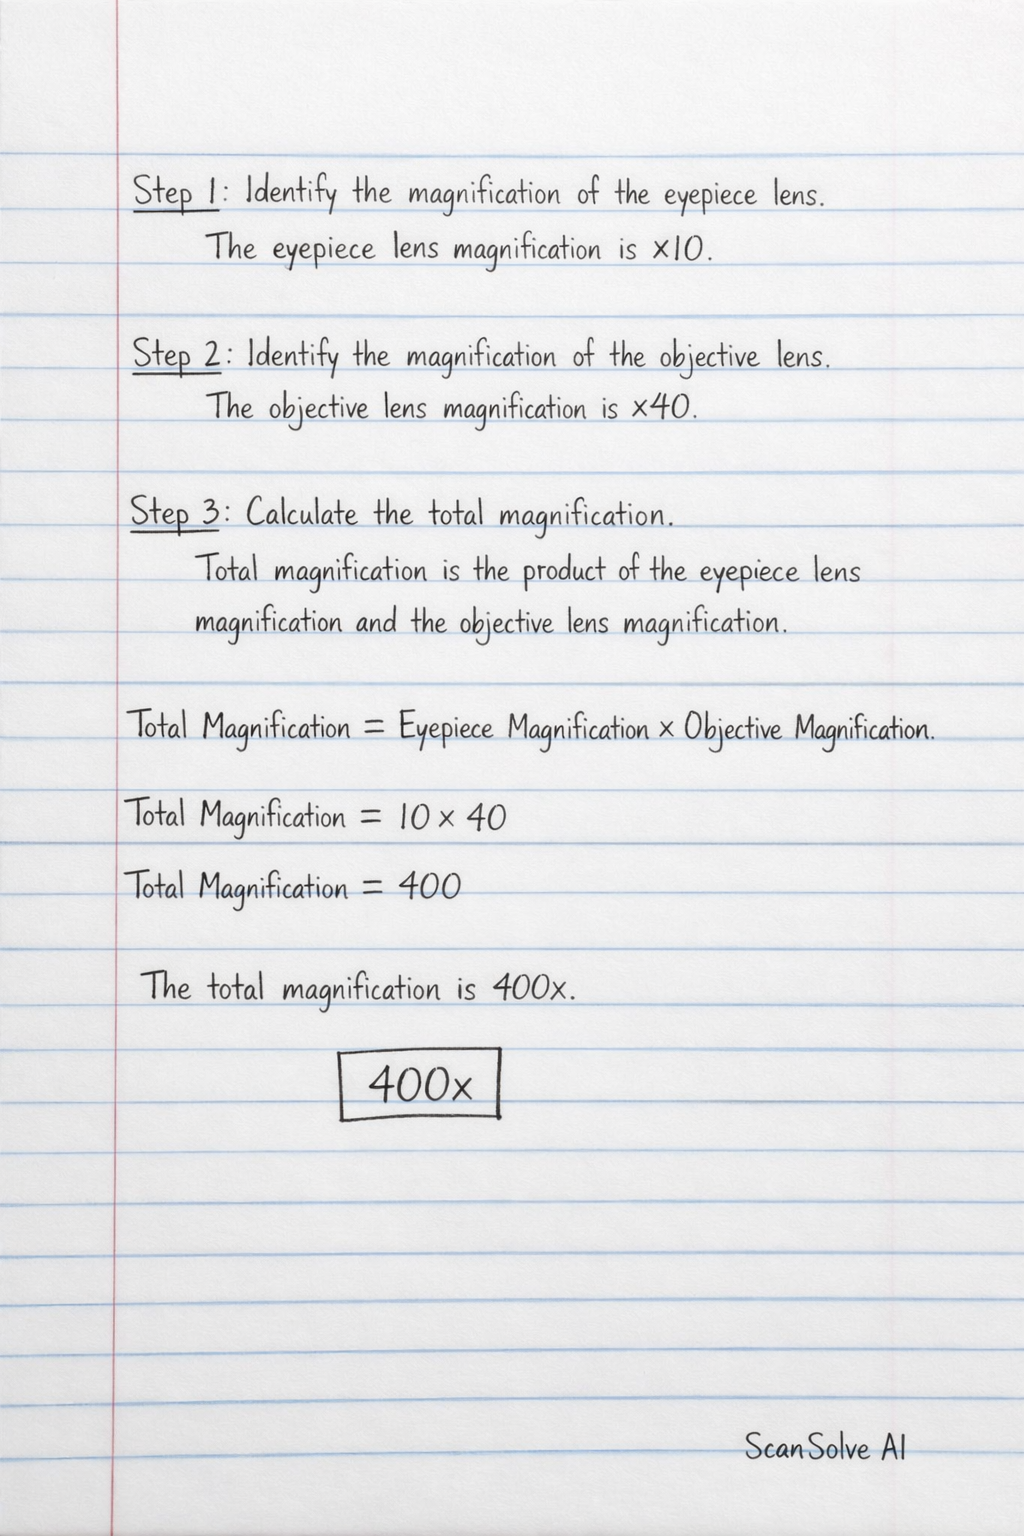 Step 1: Identify the magnification of the eyepiece lens.
The eyepiece lens magnification is ×10.
Step 2: Identify the magnification of the objective lens.
The objective lens magnification is ×40.
Step 3: Calculate the total magnification.
Total magnification is the product of the eyepiece lens
magnification and the objective lens magnification.
Total Magnification = Eyepiece Magnification × Objective Magnification.
Total Magnification = 10 × 40
Total Magnification = 400
The total magnification is 400x.
400x
ScanSolve AI